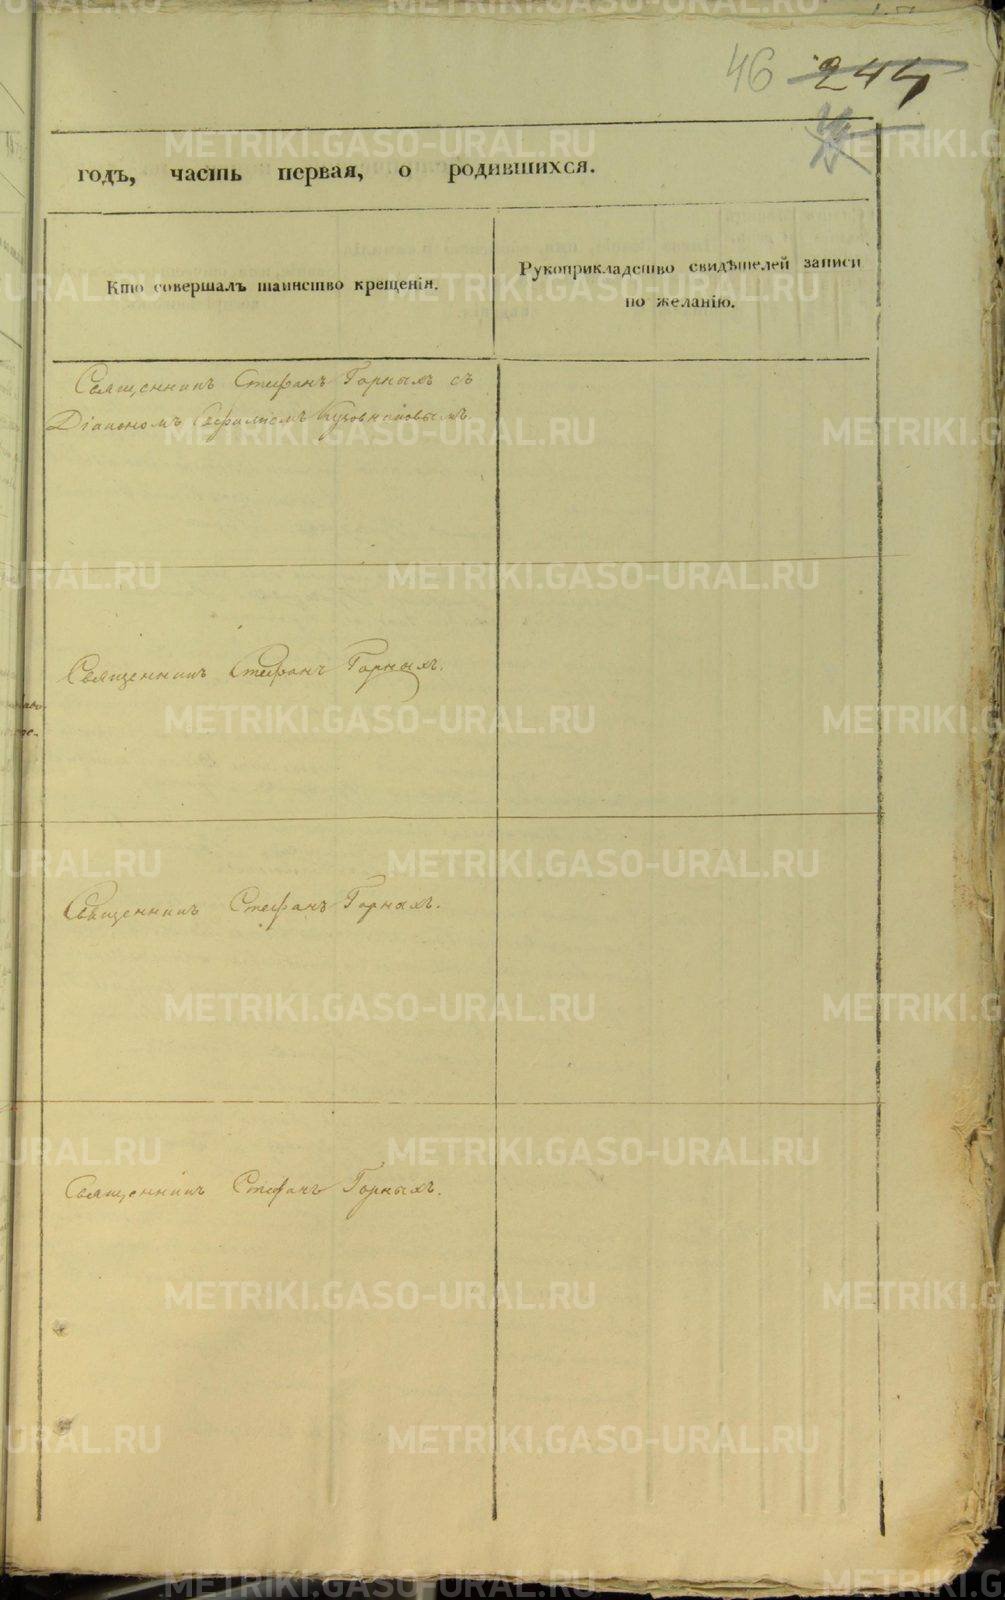 46 244
годъ, часть первая, о родившихся.
Кто совершалъ таинство крещенія.
Рукоприкладство свидѣтелей записи
по желанію.
Священникъ Стефанъ Горныхъ съ
Діакономъ
Священникъ Стефанъ Горныхъ.
Священникъ Стефанъ Горныхъ.
Священникъ Стефанъ Горныхъ.
METRIKI.GASO-URAL.RU